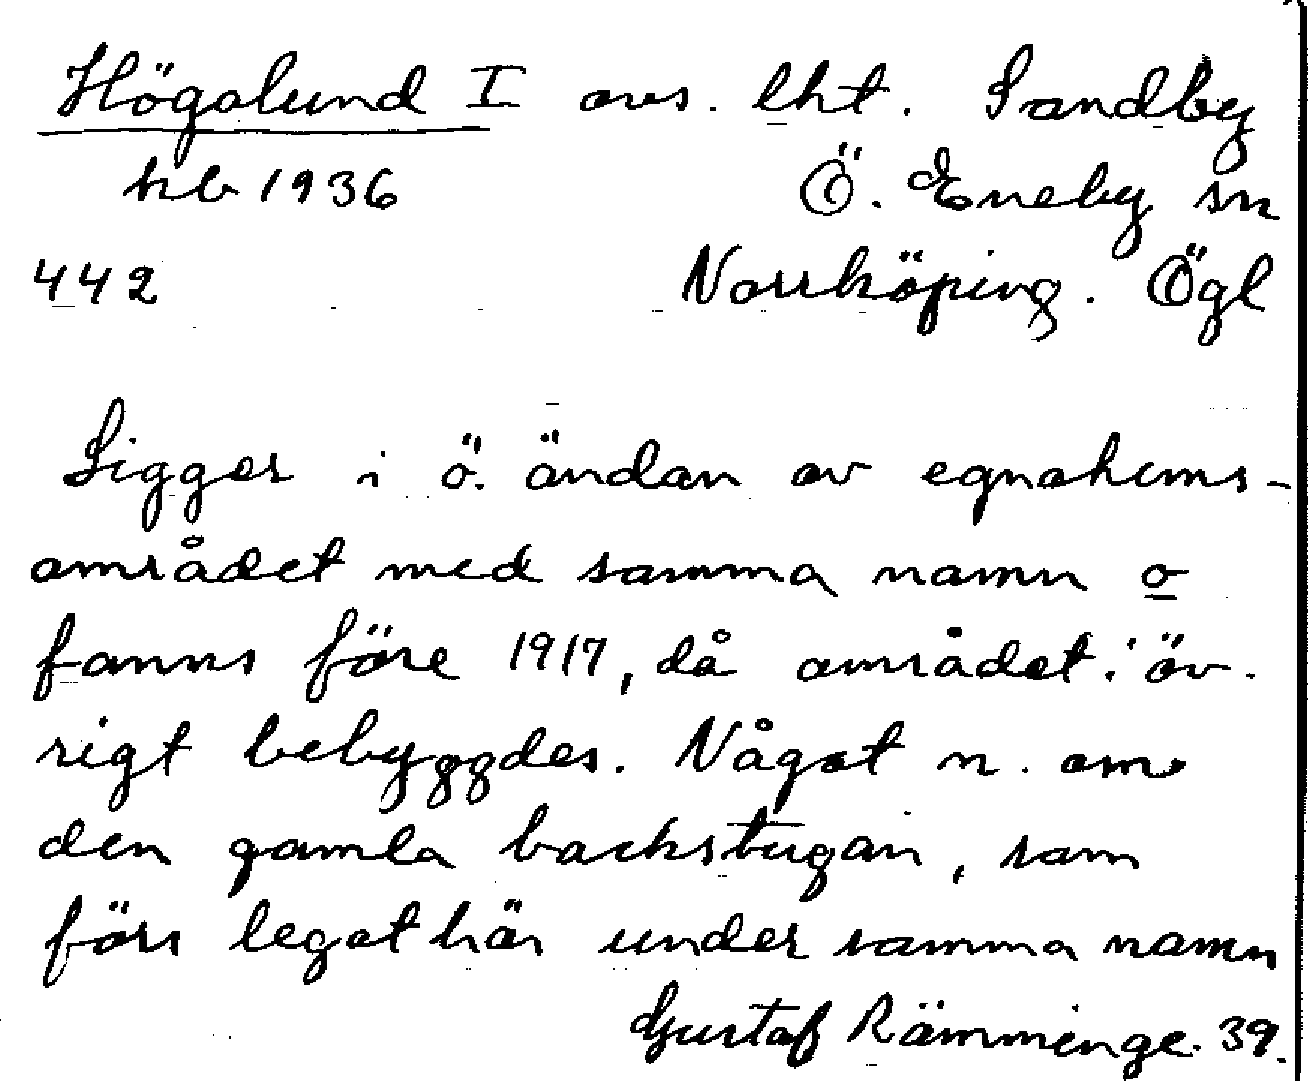 Högalund I avs. lht. Sandby
hb 1936 Ö. Eneby sn
442 Norrköping. Ögl
Ligger i ö. ändan av egnahems-
området med samma namn o
fanns före 1917, då området i öv-
rigt bebyggdes. Något n. om
den gamla backstugan, som
förr legat här under samma namn
Gustaf Rämminge. 39.